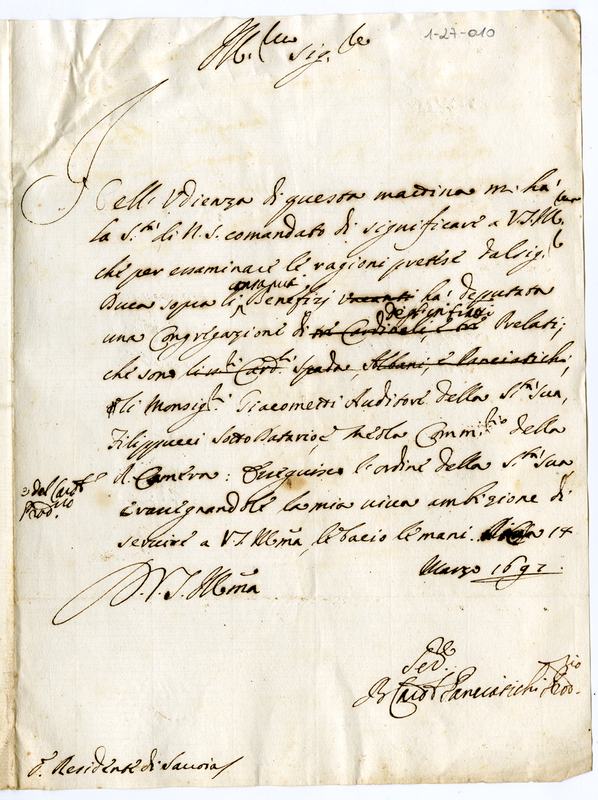 1-27-010
Ill.mo sig.re
Nell'Udienza di questa mattina mi ha'
la S.tà di N. S. comandato di significare a V.S. Ill.
che per essaminare le ragioni pretese dal sig.
Duca sopra li Benefizj vacanti ha' deputata
una Congregazione di tré Cardinali, e tré Prelati;
che sono li ss.ri Card.li Spada, Albani, e Panciatichi
li Monsig.ri Giacometti Auditore della S.tà Sua,
Filippucci Sotto Datario, e Meola Comm.rio della
R. Camera: Eseguisco l'ordine della S.tà Sua
e del Card.le
Pro.
e rassegnandole la mia viva ambizione di
servire a V.S. Ill.ma, le bacio le mani. 14
Marzo 1692.
D. V. S. Ill.ma
Se.
B Card. Panciatichi
S. Residente di Savoia